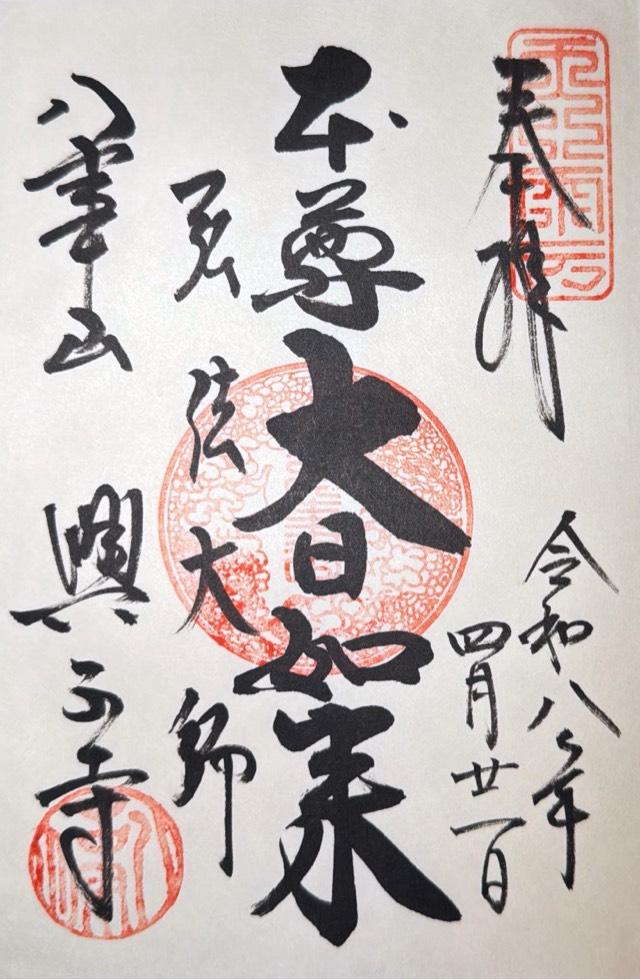 奉拝
令和八年
四月廿一日
本尊大日如来
弘法大師
八事山 興正寺